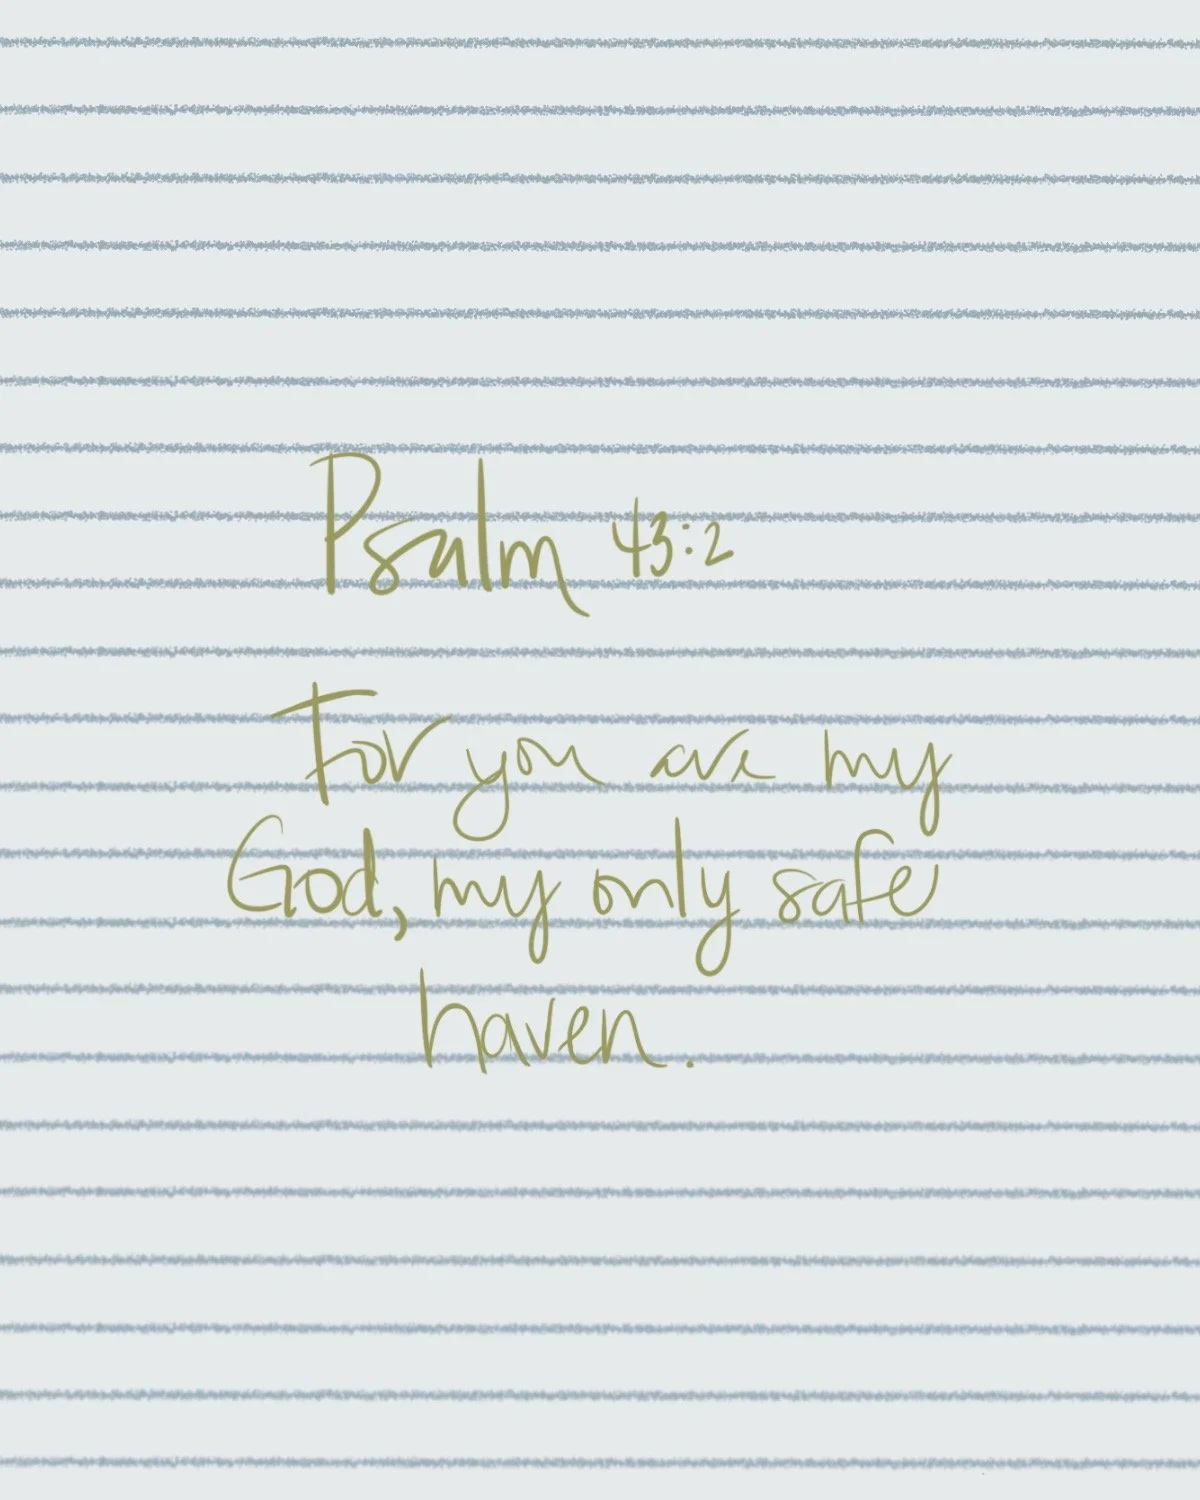 Psalm 43:2
For you are my
God, my only safe
haven.